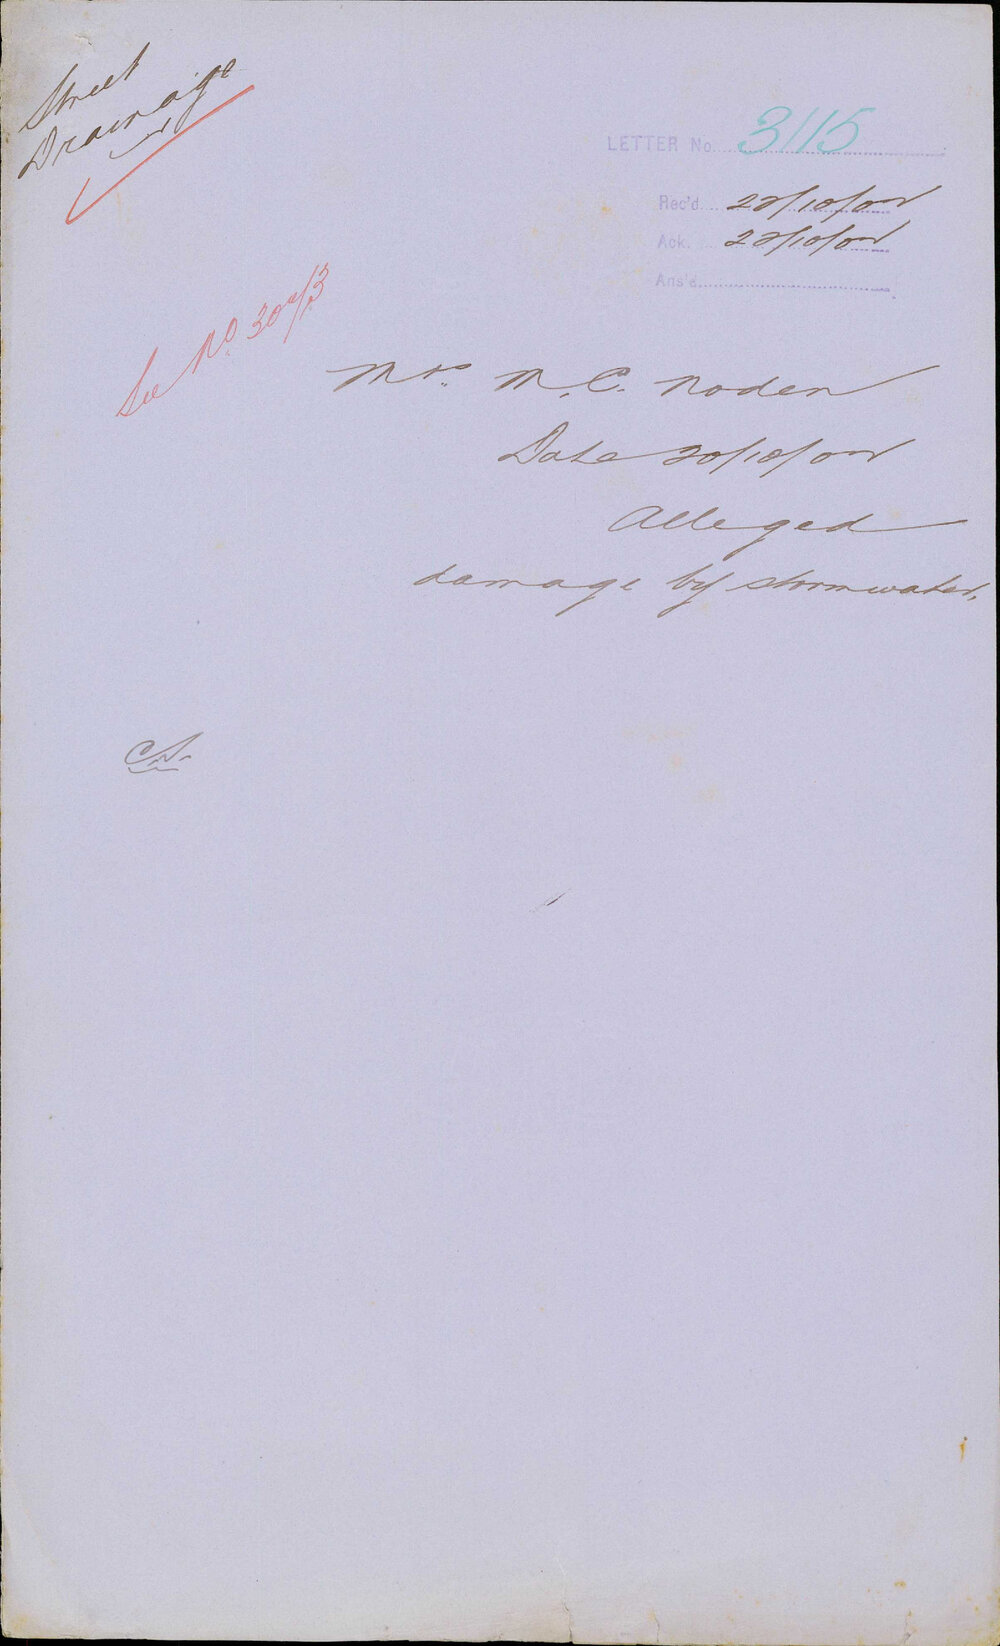 Street
Drainage
LETTER No. 3115
Rec'd. 22/10/02
Ack. 22/10/02
Ans'd.
See No.
Mrs. M. C. Noden
Date 20/10/02
Alleged
damage by stormwater.